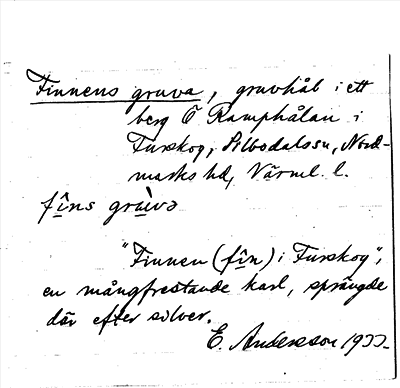 Finnens gruva, gruvhål i ett
berg Ö Ramphålan i
Furskog, Silbodalssn, Nord-
marks hd, Värml. l.
fîns grùvə
"Finnen (fîn) i Furskog",
en mångfrestande karl, sprängde
där efter silver.
E. Andersson 1933